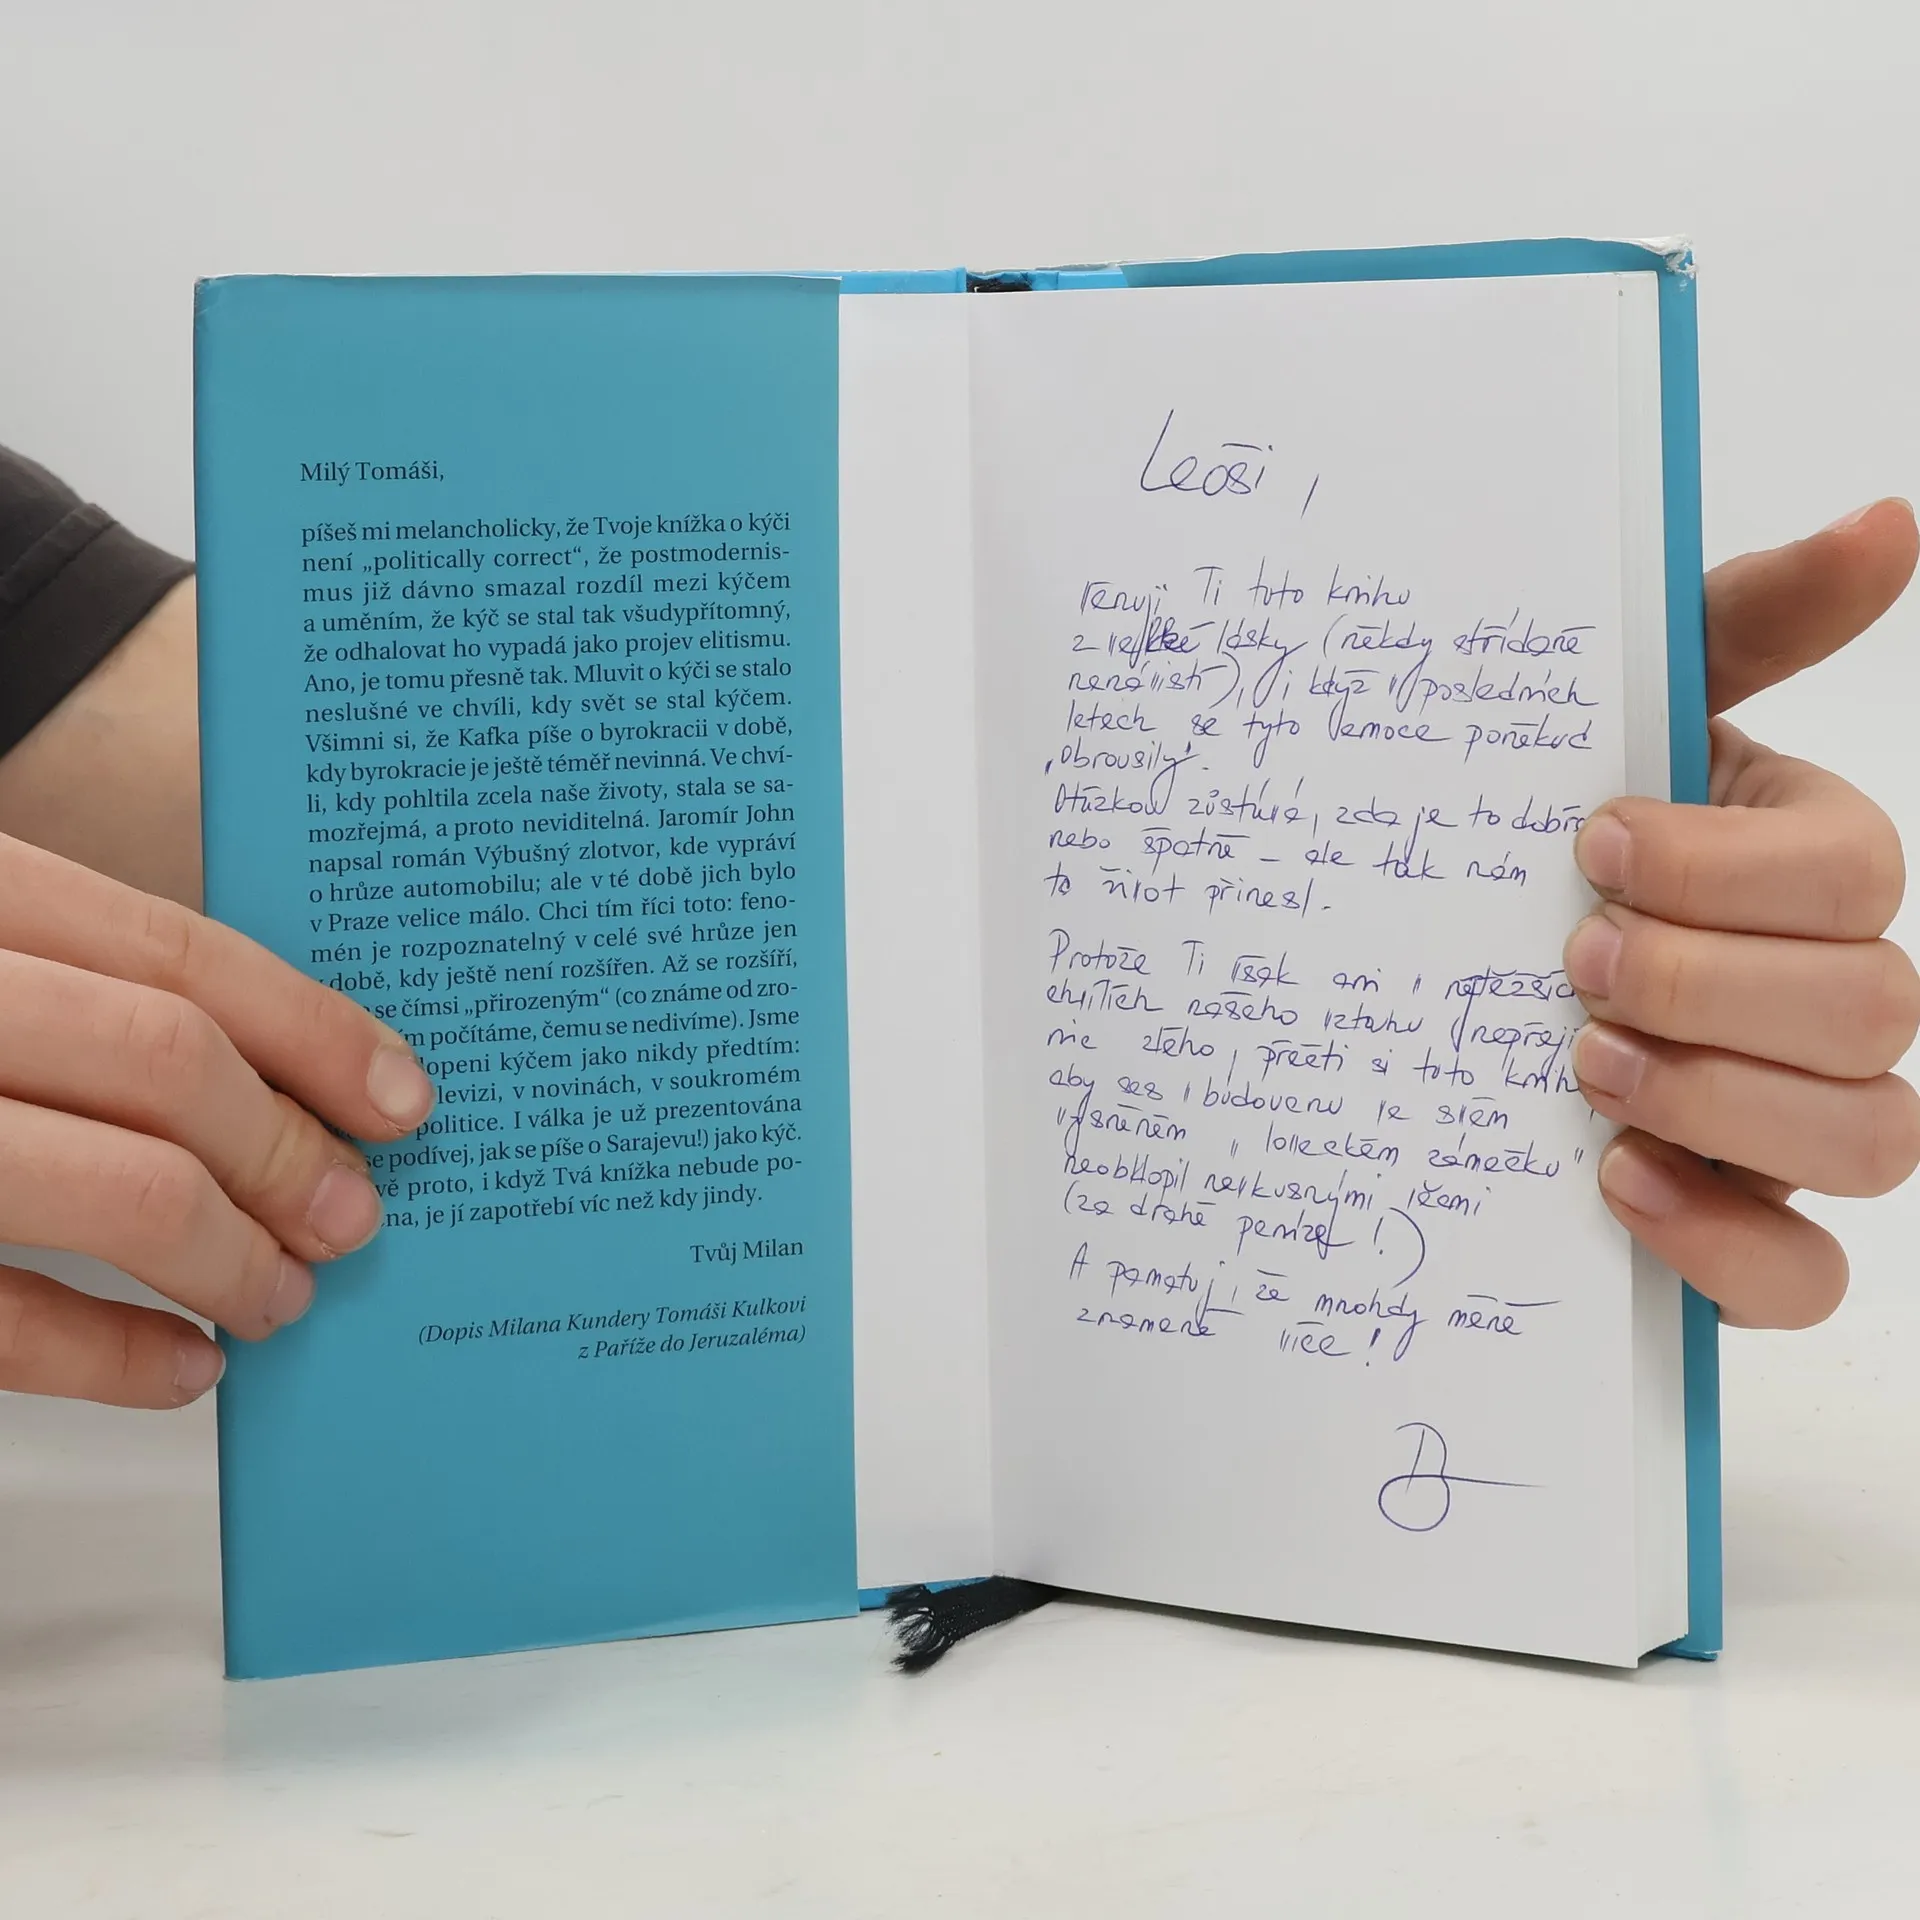 Milý Tomáši,
píšeš mi melancholicky, že Tvoje knížka o kýči
není „politically correct“, že postmodernis-
mus již dávno smazal rozdíl mezi kýčem
a uměním, že kýč se stal tak všudypřítomný,
že odhalovat ho vypadá jako projev elitismu.
Ano, je tomu přesně tak. Mluvit o kýči se stalo
neslušné ve chvíli, kdy svět se stal kýčem.
Všimni si, že Kafka píše o byrokracii v době,
kdy byrokracie je ještě téměř nevinná. Ve chví-
li, kdy pohltila zcela naše životy, stala se sa-
mozřejmá, a proto neviditelná. Jaromír John
napsal román Výbušný zlotvor, kde vypráví
o hrůze automobilu; ale v té době jich bylo
v Praze velice málo. Chci tím říci toto: feno-
mén je rozpoznatelný v celé své hrůze jen
v době, kdy ještě není rozšířen. Až se rozšíří,
se čímsi „přirozeným“ (co známe od zro-
počítáme, čemu se nedivíme). Jsme
lopeni kýčem jako nikdy předtím:
levizi, v novinách, v soukromém
politice. I válka je už prezentována
se podívej, jak se píše o Sarajevu!) jako kýč.
vě proto, i když Tvá knížka nebude po-
na, je jí zapotřebí víc než kdy jindy.
Tvůj Milan
(Dopis Milana Kundery Tomáši Kulkovi
z Paříže do Jeruzaléma)
Leoši,
Věnuji Ti tuto knihu
z velké lásky (někdy střídané
nenávistí), i když v posledních
letech se tyto emoce poněkud
„obrousily“.
Otázkou zůstává, zda je to dobře
nebo špatně – ale tak nám
to život přinesl.
Protože Ti však ani v nejtěžšíc
chvílích našeho vztahu nepřeji
nic zlého, přečti si tuto knih
aby ses v budoucnu ve svém
vysněném " loveckém zámečku "
neobklopil nevkusnými věcmi
(za drahé peníze!)
A pamatuj, že mnohdy méně
znamená více!